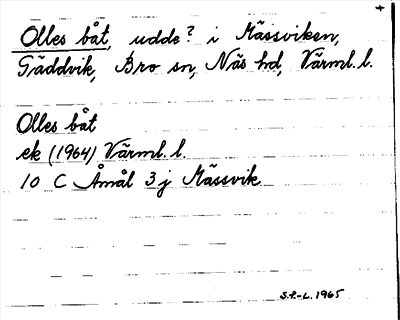 +
Olles båt, udde? i Mässviken,
Gäddvik, Bro sn, Näs hd, Värml. l.
Olles båt
ek (1964) Värml. l.
10 C Åmål 3 j Mässvik
S.F.-L. 1965